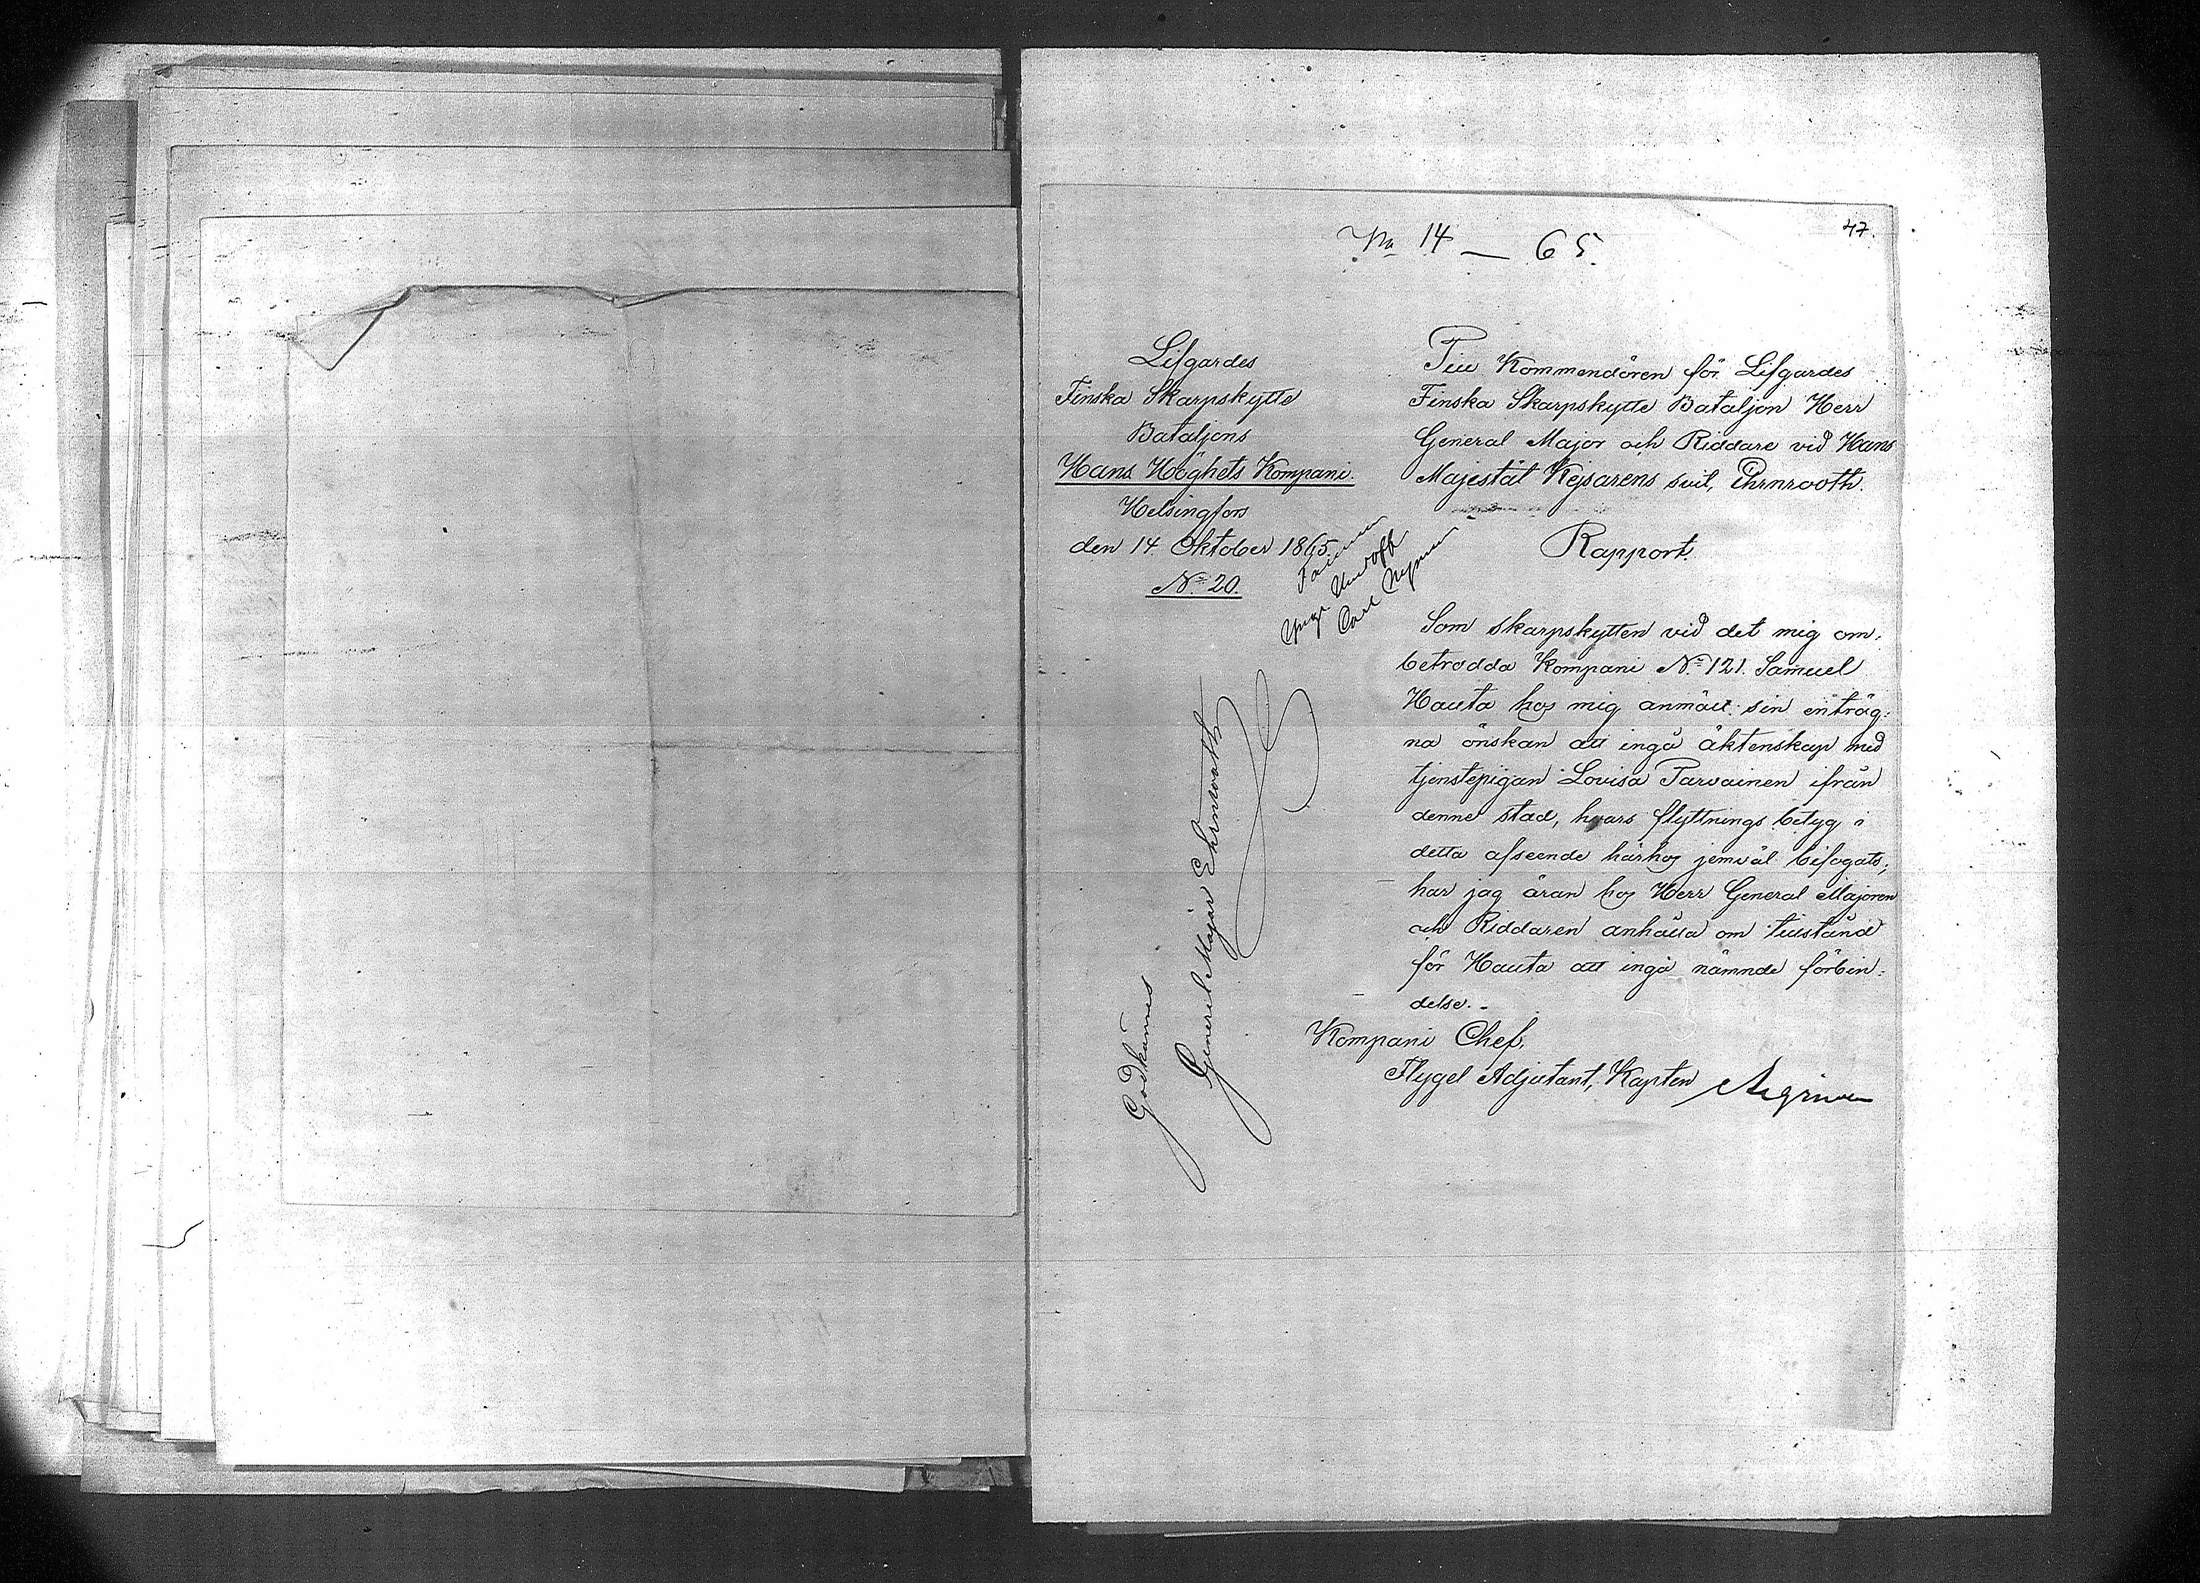 47.
No 14 — 65.
Lifgardes
Finska Skarpskytte
Bataljons
Hans Höghets Kompani.
Helsingfors
den 14 Oktober 1865.
No 20.
Till Kommendören för Lifgardes
Finska Skarpskytte Bataljon Herr
General Major och Riddare vid Hans
Majestät Kejsarens svit, Ehrnrooth.
Rapport.
Carl Nyman
Som skarpskytten vid det mig om-
betrodda Kompani No 121. Samuel
Hauta hos mig anmält sin enträg-
na önskan att ingå äktenskap med
tjenstepigan Lovisa Parvainen ifrån
denne stad, hvars flyttnings betyg i
detta afseende härhos jemväl bifogats;
har jag äran hos Herr General Majoren
och Riddaren anhålla om tillstånd
för Hauta att ingå nämnde förbin-
delse.-
Kompani Chef,
Flygel Adjutant, Kapten
Godkännes
General Major Ehrnrooth